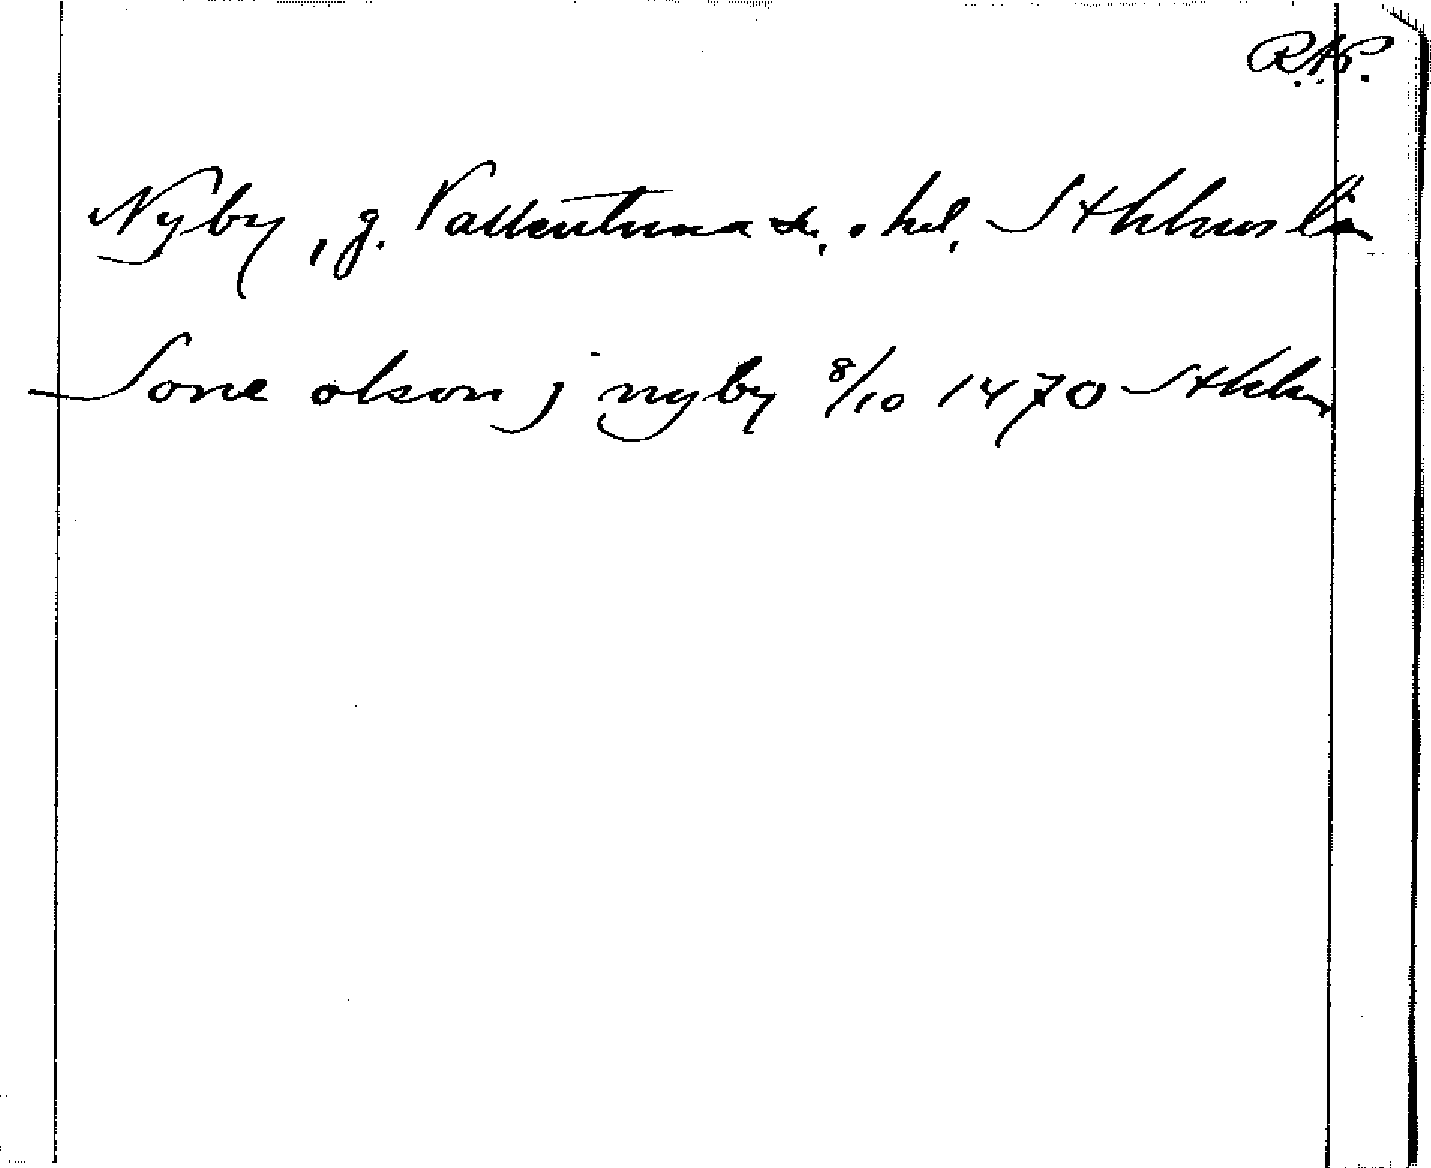 R.A.P.
Nyby, g. Vallentuna sn. o. hd. Sthlms län
Sone olson j nyby 8/10 1470 Sthlm